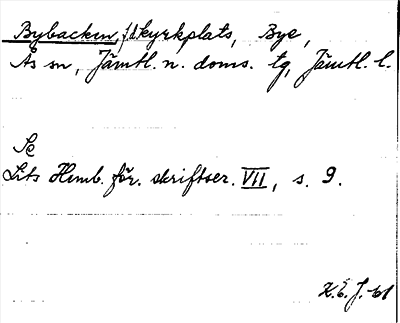 Bybacken, f.d. kyrkplats, Bye,
Ås sn, Jämtl. n. doms. tg, Jämtl. l.
Se
Lits Hemb. för. skriftser. VII, s. 9.
K.E.J. -61